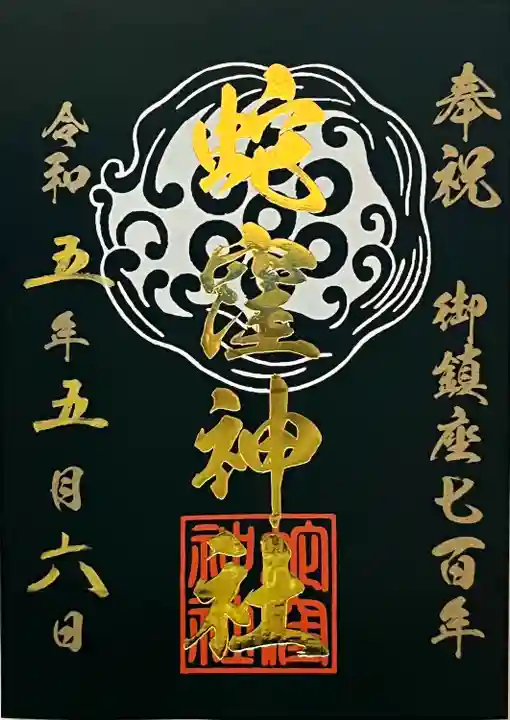 奉祝 御鎮座七百年
蛇窪神社
蛇窪
神社
令和五年五月六日